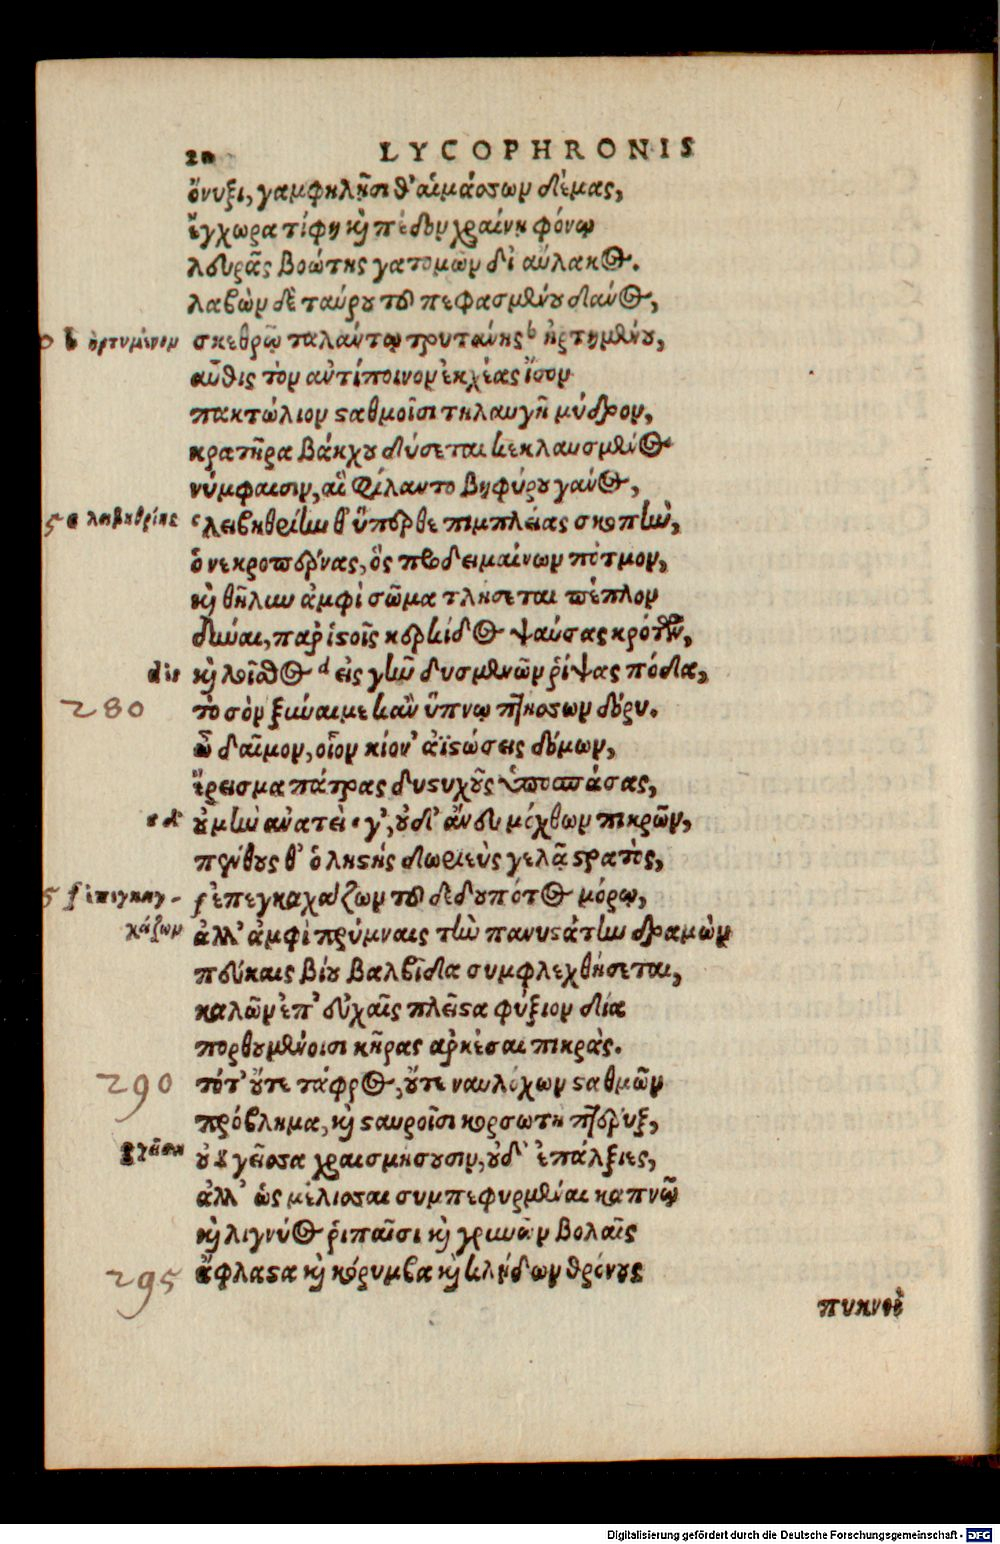 20 LYCOPHRONIS
ὄνυξι, γαμφηλῇσι θ' αἱμάσσων δέμας,
ἔγχωρα τίφη καὶ πέδον χραίνῃ φόνῳ
λευρᾶς βοώτης γατομῶν δι' αὔλακος.
λαβὼν δὲ ταύρου τοῦ πεφασμένου δάνος,
b ὀρτυμένον σκεθρῷ ταλάντῳ τρυτάνης b ἠρτημένου,
αὖθις τὸν ἀντίποινον ἐκχέας ἴσον
πακτώλιον σταθμοῖσι τηλαυγῆ μύδρον,
κρατῆρα βάκχου δύσεται κεκλαυσμένος
νύμφαισιν, αἳ φίλαντο βηφύρου γάνος,
c λειβηθρίης c λειβηθρίην θ' ὕπερθε πιμπλείας σκοπὴν,
ὁ νεκροπέρνας, ὃς προδειμαίνων πότμον,
καὶ θῆλυν ἀμφὶ σῶμα τλήσεται πέπλον
δῦναι, παρ' ἱστοῖς κερκίδος ψαύσας κρότων,
καὶ λοῖσθος d εἰς γῆν δυσμενῶν ῥίψας πόδα,
280 τὸ σὸν ξύναιμε κἀν ὕπνῳ πτήσσων δόρυ.
ὦ δαῖμον, οἷον κίον' ἀϊστώσεις δόμων,
ἔρεισμα πάτρας δυστυχοῦς ὑποσπάσας,
οὐ μὴν ἀνατεί e γ', οὐδ' ἄνευ μόχθων πικρῶν,
πένθους θ' ὁ λῃστὴς δωριεὺς γελᾷ στρατὸς,
f ἐπιγκαγχάζων f ἐπεγκαχάζων τοῦ δεδουπότος μόρῳ,
ἀλλ' ἀμφὶ πρύμναις τὴν πανυστάτην δραμὼν
πεύκαις βίου βαλβῖδα συμφλεχθήσεται,
καλῶν ἐπ' εὐχαῖς πλεῖστα φύξιον δία
πορθουμένοισι κῆρας ἀρκέσαι πικρὰς.
290 τότ' οὔτε τάφρος, οὔτε ναυλόχων σταθμῶν
πρόβλημα, καὶ σταυροῖσι κορσωτὴ πτέρυξ,
οὐ g γεῖσσα χραισμήσουσιν, οὐδ' ἐπάλξιες,
ἀλλ' ὡς μέλισσαι συμπεφυρμέναι καπνῷ
καὶ λιγνύος ῥιπαῖσι καὶ γρυνῶν βολαῖς
295 ἄφλαστα καὶ κόρυμβα καὶ κληΐδων θρόνους
πυκνοὶ
Digitalisierung gefördert durch die Deutsche Forschungsgemeinschaft - DFG